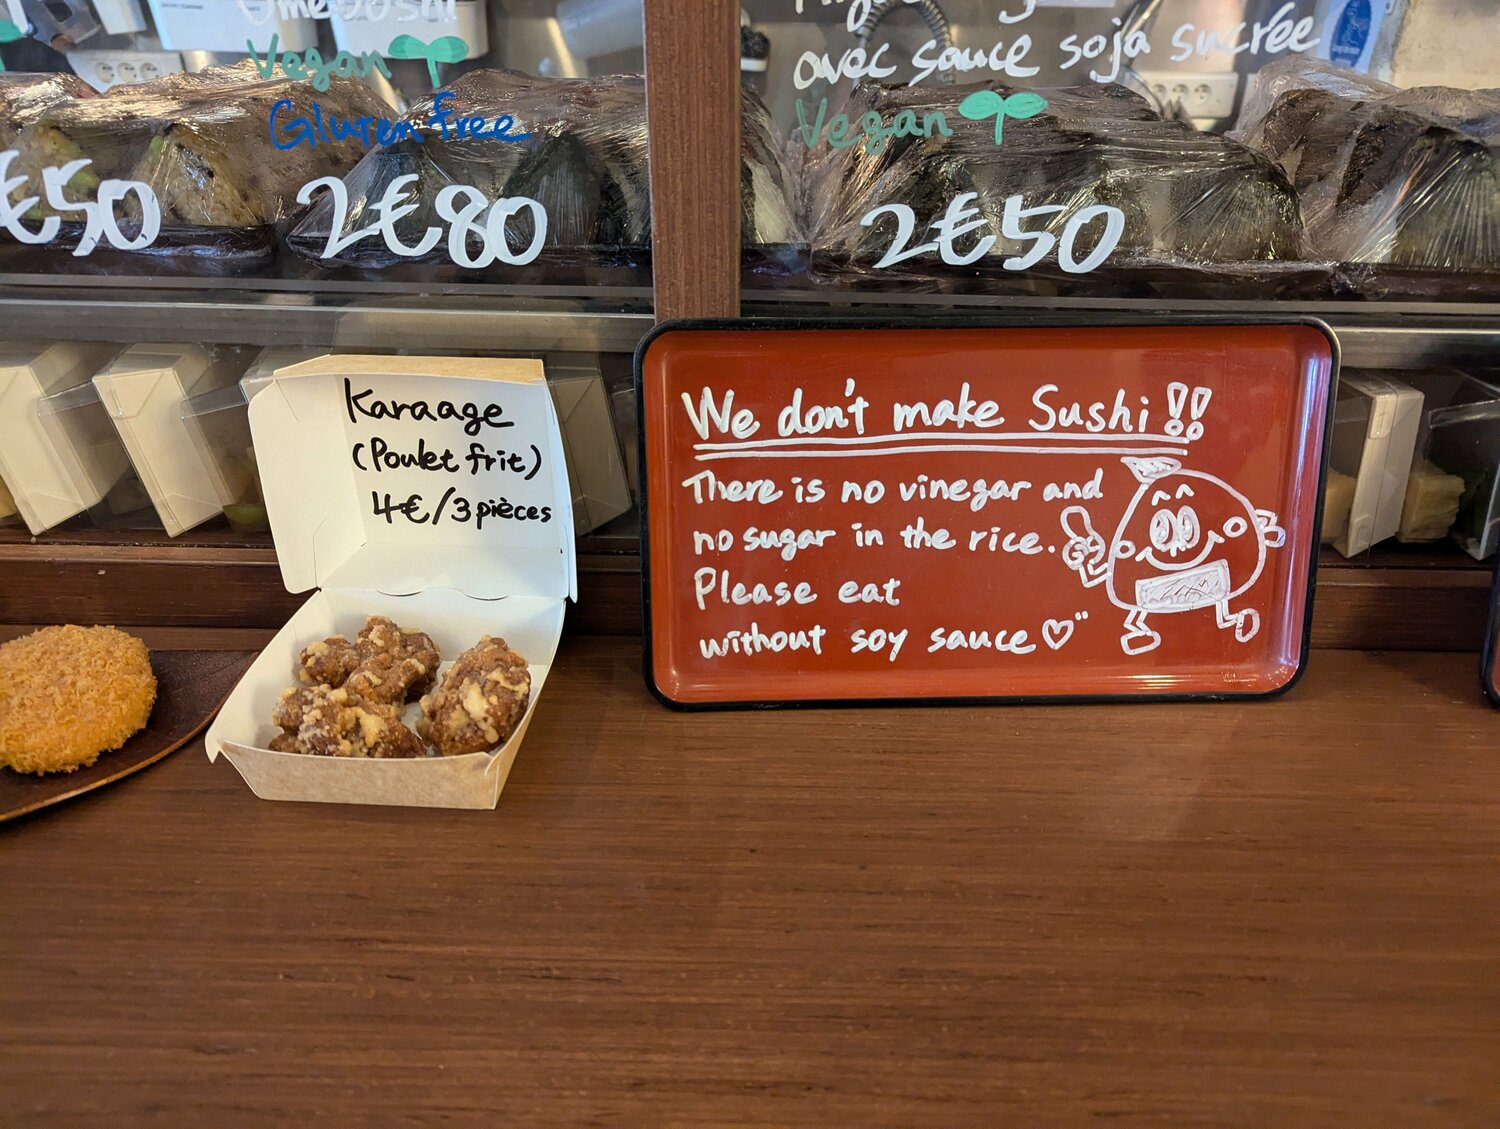 Umeboshi
Vegan
Gluten free
€50
2€80
avec sauce soja sucrée
Vegan
2€50
Karaage
(Poulet frit)
4€/3pièces
We don't make Sushi!!
There is no vinegar and
no sugar in the rice.
Please eat
without soy sauce♡"